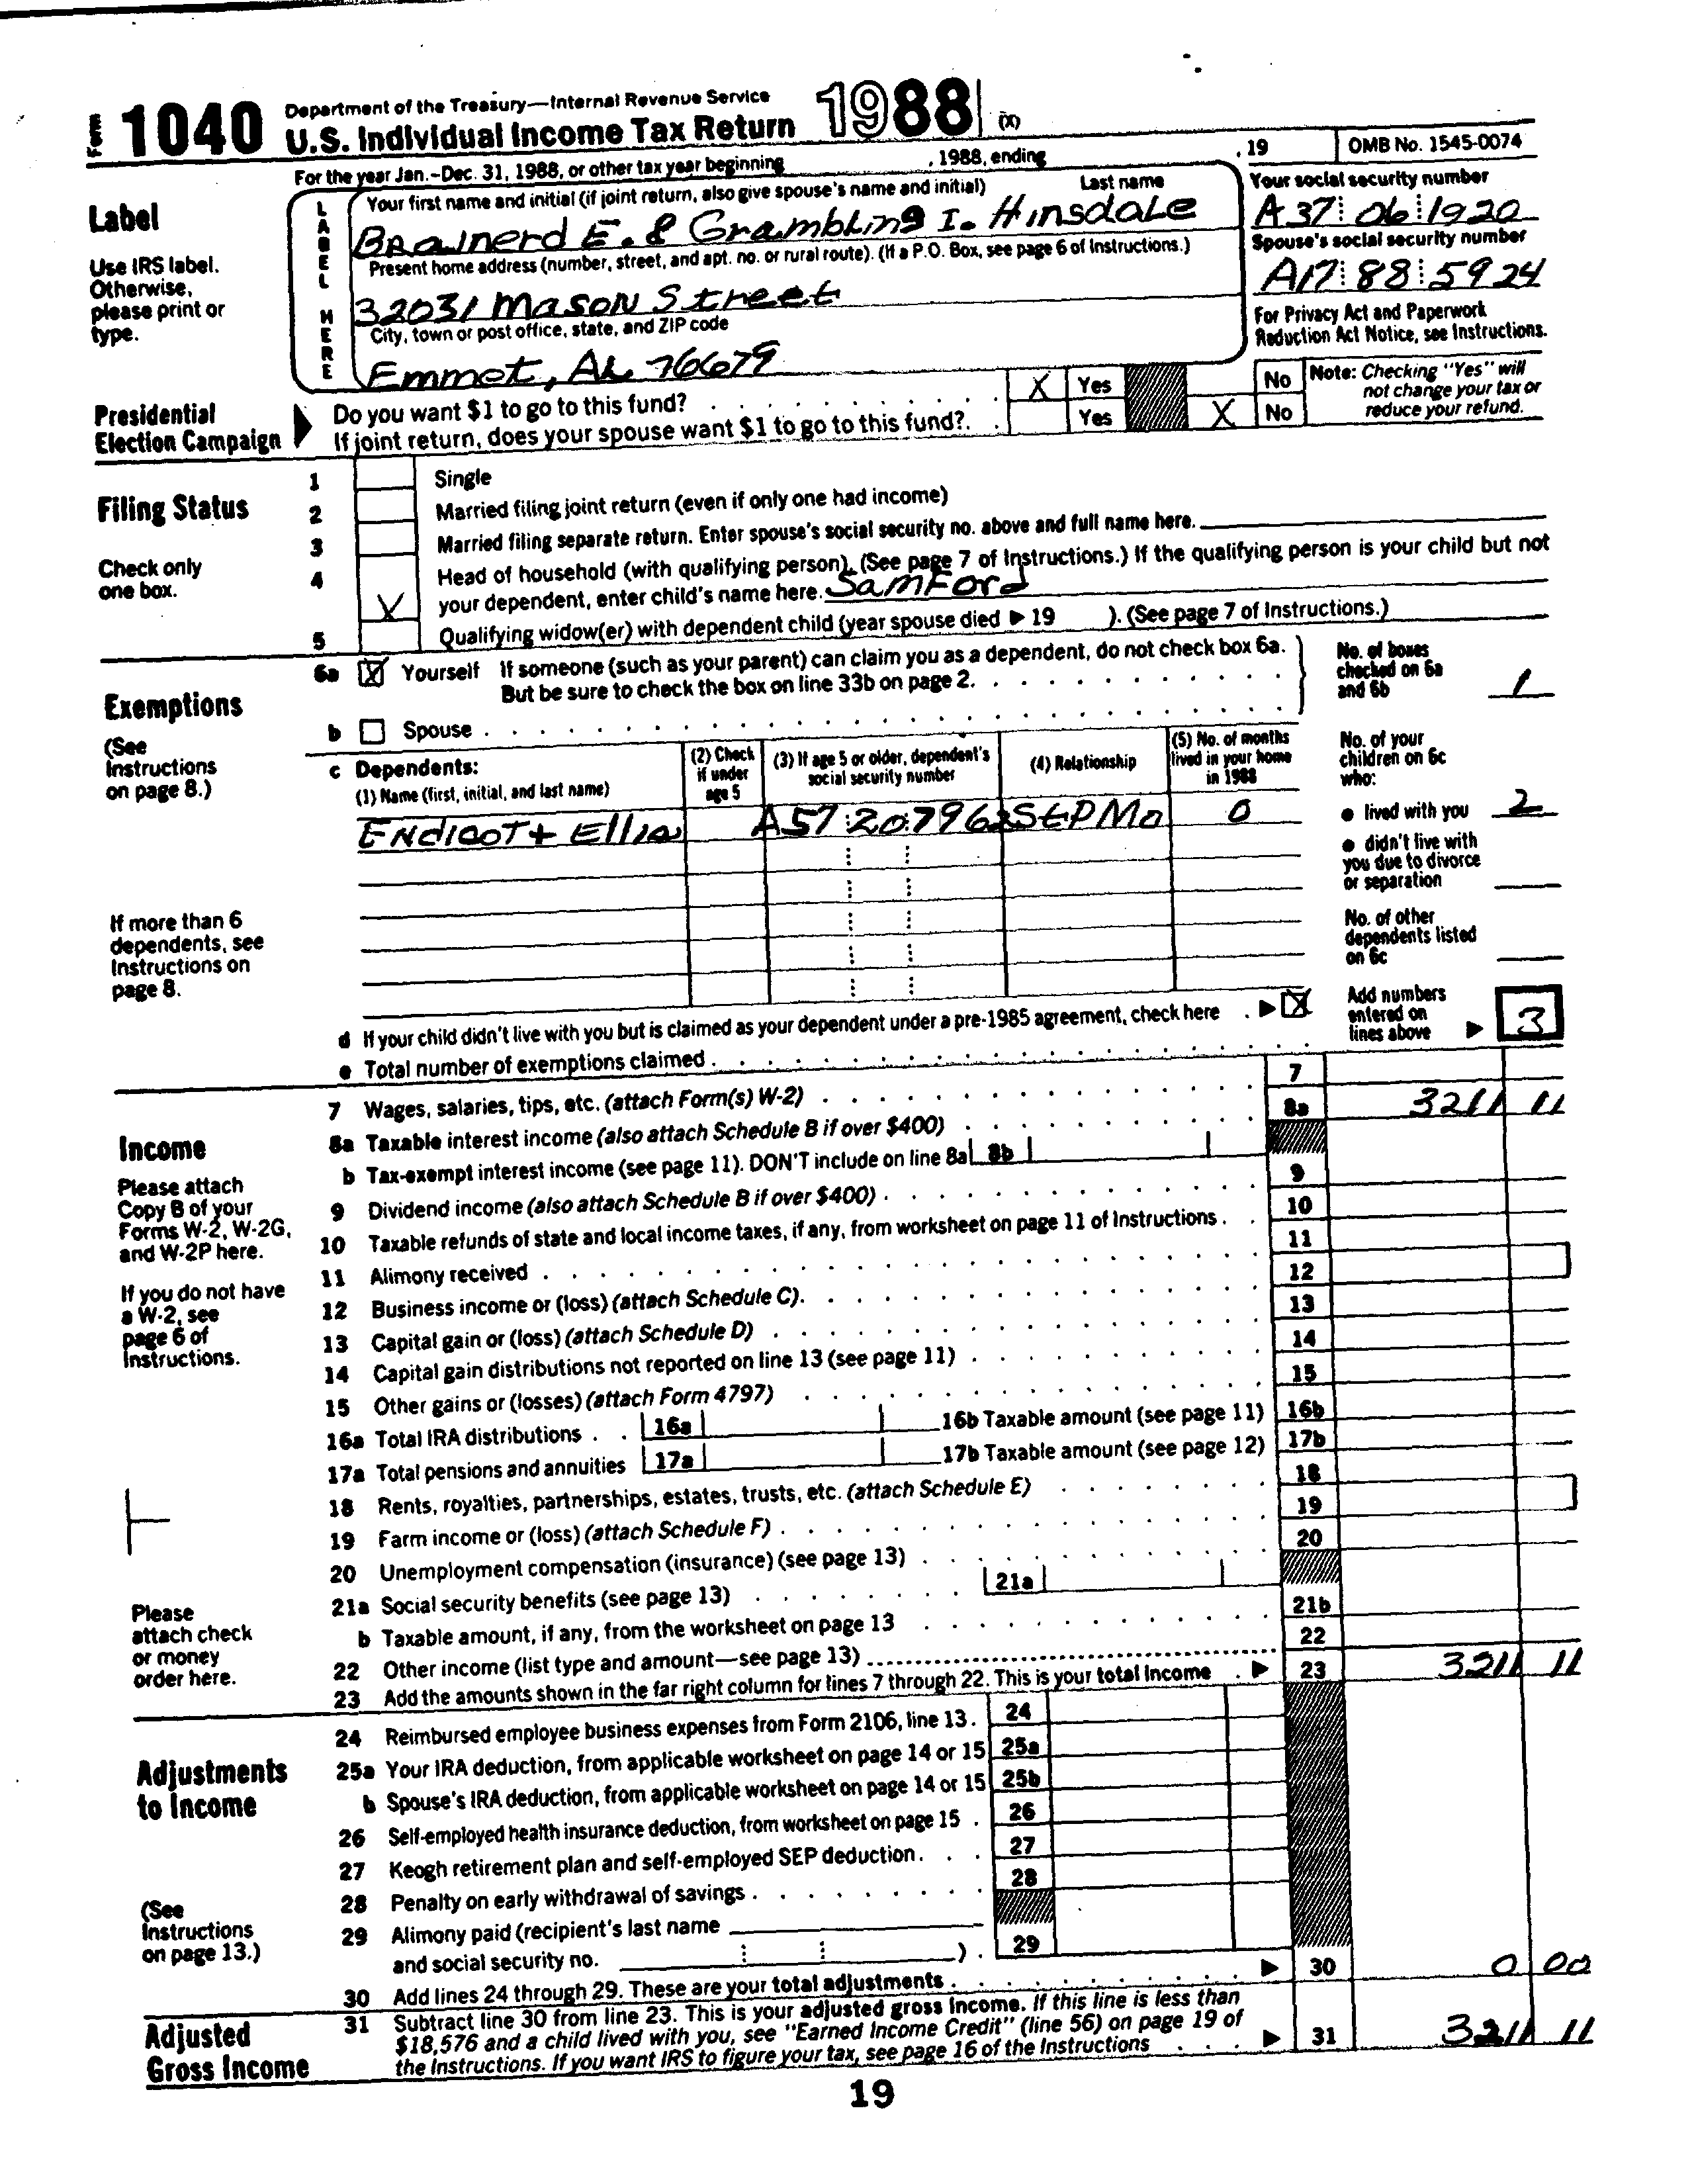 Form 1040 Department of the Treasury—Internal Revenue Service
U.S. Individual Income Tax Return 1988 (X)
For the year Jan.-Dec. 31, 1988, or other tax year beginning , 1988, ending , 19 OMB No. 1545-0074
Label
Use IRS label.
Otherwise,
please print or
type.
LABEL HERE
Your first name and initial (if joint return, also give spouse's name and initial) Last name
Brainerd E. & Grambling I. Hinsdale
Present home address (number, street, and apt. no. or rural route). (If a P.O. Box, see page 6 of Instructions.)
32031 Mason Street
City, town or post office, state, and ZIP code
Emmet, AL 76679
Your social security number
A37 06 1920
Spouse's social security number
A17 88 5924
For Privacy Act and Paperwork
Reduction Act Notice, see Instructions.
Presidential
Election Campaign
Do you want $1 to go to this fund? X Yes No
If joint return, does your spouse want $1 to go to this fund? Yes X No
Note: Checking "Yes" will
not change your tax or
reduce your refund.
Filing Status
Check only
one box.
1 Single
2 Married filing joint return (even if only one had income)
3 Married filing separate return. Enter spouse's social security no. above and full name here.
4 Head of household (with qualifying person). (See page 7 of Instructions.) If the qualifying person is your child but not
X your dependent, enter child's name here. Samford
5 Qualifying widow(er) with dependent child (year spouse died ▶ 19 ). (See page 7 of Instructions.)
Exemptions
(See
Instructions
on page 8.)
If more than 6
dependents, see
Instructions on
page 8.
6a X Yourself If someone (such as your parent) can claim you as a dependent, do not check box 6a.
But be sure to check the box on line 33b on page 2.
b Spouse
No. of boxes
checked on 6a
and 6b 1
c Dependents:
(1) Name (first, initial, and last name)
(2) Check
if under
age 5
(3) If age 5 or older, dependent's
social security number
(4) Relationship
(5) No. of months
lived in your home
in 1988
Endicott Ellis A57 20 7962 StepMo 0
No. of your
children on 6c
who:
• lived with you 2
• didn't live with
you due to divorce
or separation
No. of other
dependents listed
on 6c
d If your child didn't live with you but is claimed as your dependent under a pre-1985 agreement, check here ▶ X
e Total number of exemptions claimed
Add numbers
entered on
lines above ▶ 3
Income
Please attach
Copy B of your
Forms W-2, W-2G,
and W-2P here.
If you do not have
a W-2, see
page 6 of
Instructions.
Please
attach check
or money
order here.
7 Wages, salaries, tips, etc. (attach Form(s) W-2) 7
8a Taxable interest income (also attach Schedule B if over $400) 8a 3211 11
b Tax-exempt interest income (see page 11). DON'T include on line 8a 8b
9 Dividend income (also attach Schedule B if over $400) 9
10 Taxable refunds of state and local income taxes, if any, from worksheet on page 11 of Instructions 10
11 Alimony received 11
12 Business income or (loss) (attach Schedule C) 12
13 Capital gain or (loss) (attach Schedule D) 13
14 Capital gain distributions not reported on line 13 (see page 11) 14
15 Other gains or (losses) (attach Form 4797) 15
16a Total IRA distributions 16a 16b Taxable amount (see page 11) 16b
17a Total pensions and annuities 17a 17b Taxable amount (see page 12) 17b
18 Rents, royalties, partnerships, estates, trusts, etc. (attach Schedule E) 18
19 Farm income or (loss) (attach Schedule F) 19
20 Unemployment compensation (insurance) (see page 13) 20
21a Social security benefits (see page 13) 21a
b Taxable amount, if any, from the worksheet on page 13 21b
22 Other income (list type and amount—see page 13) 22
23 Add the amounts shown in the far right column for lines 7 through 22. This is your total income ▶ 23 3211 11
Adjustments
to Income
(See
Instructions
on page 13.)
24 Reimbursed employee business expenses from Form 2106, line 13 24
25a Your IRA deduction, from applicable worksheet on page 14 or 15 25a
b Spouse's IRA deduction, from applicable worksheet on page 14 or 15 25b
26 Self-employed health insurance deduction, from worksheet on page 15 26
27 Keogh retirement plan and self-employed SEP deduction 27
28 Penalty on early withdrawal of savings 28
29 Alimony paid (recipient's last name
and social security no. ) 29
30 Add lines 24 through 29. These are your total adjustments ▶ 30 0 00
Adjusted
Gross Income
31 Subtract line 30 from line 23. This is your adjusted gross income. If this line is less than
$18,576 and a child lived with you, see "Earned Income Credit" (line 56) on page 19 of
the Instructions. If you want IRS to figure your tax, see page 16 of the Instructions ▶ 31 3211 11
19